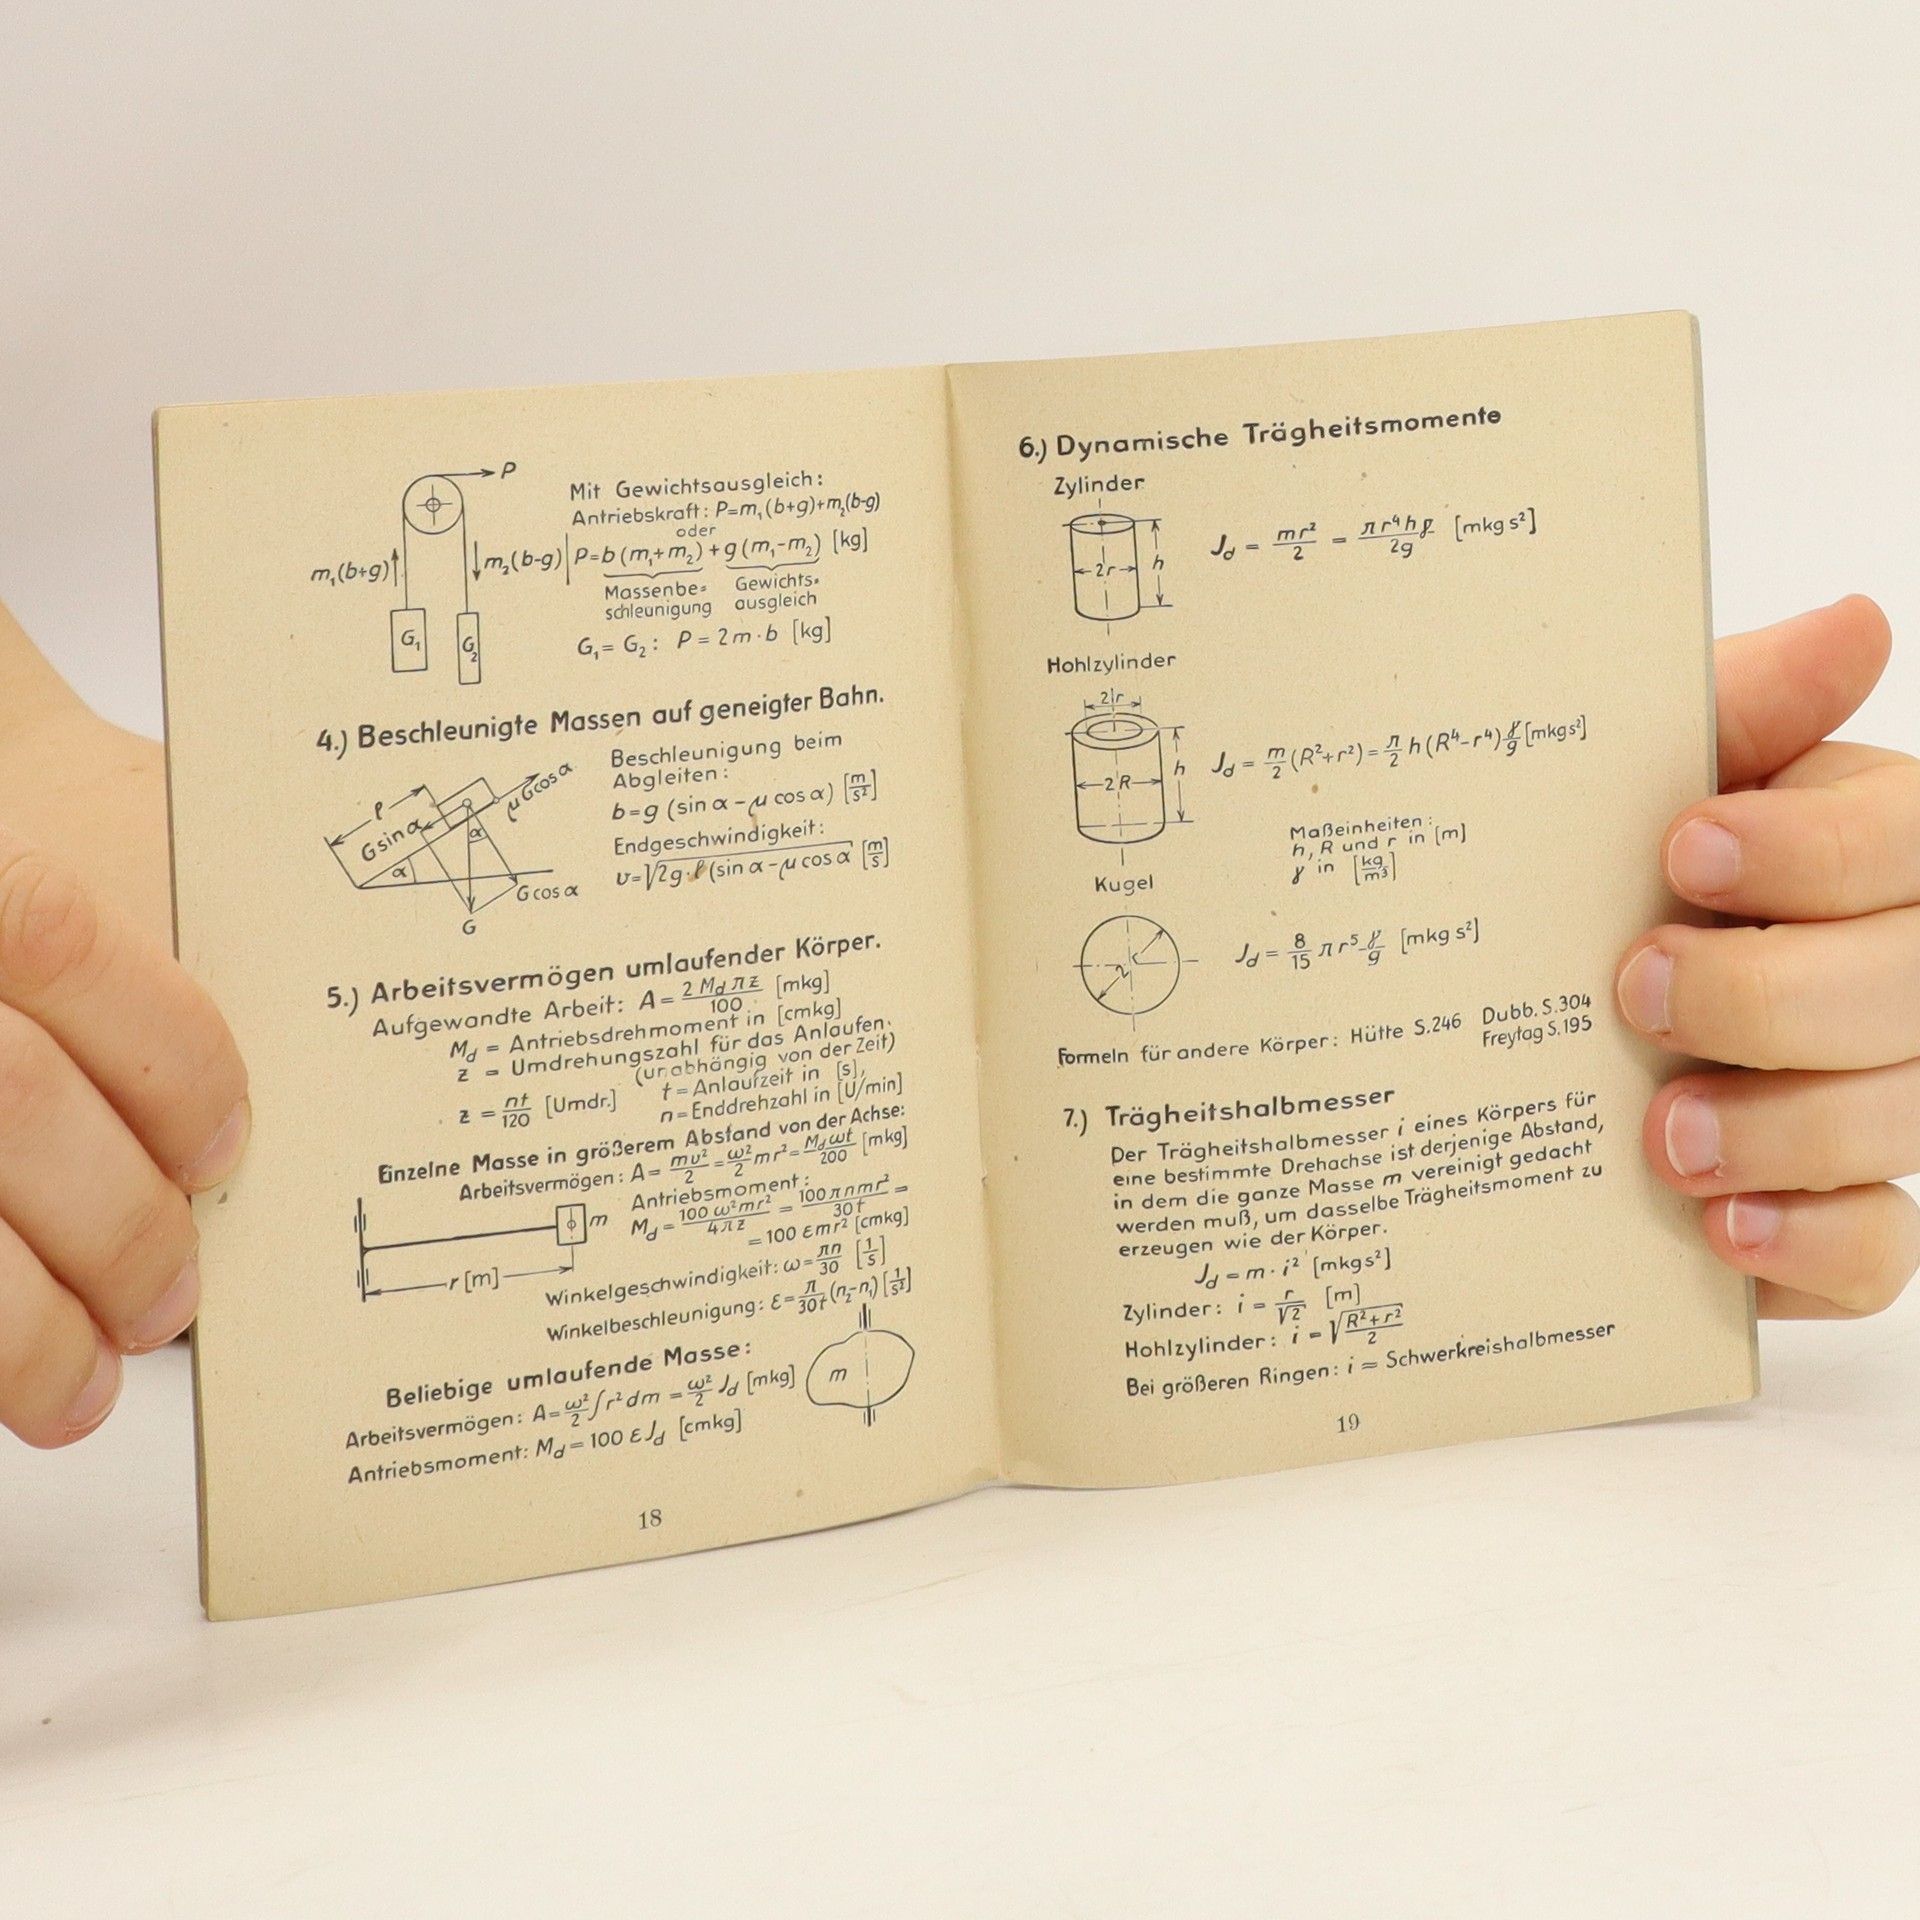 P
Mit Gewichtsausgleich:
Antriebskraft: P=m₁(b+g)+m₂(b-g)
oder
m₁(b+g) m₂(b-g) P=b(m₁+m₂)+g(m₁-m₂) [kg]
Massenbe= Gewichts=
schleunigung ausgleich
G₁ G₂
G₁=G₂: P=2m·b [kg]
4.) Beschleunigte Massen auf geneigter Bahn.
Beschleunigung beim
Abgleiten:
b=g (sin α-μ cos α) [m/s²]
Endgeschwindigkeit:
v=√2g·l(sin α-μ cos α [m/s]
l
G sin α
μ G cos α
α
α
G cos α
G
5.) Arbeitsvermögen umlaufender Körper.
Aufgewandte Arbeit: A= 2 M_d π z/100 [mkg]
M_d = Antriebsdrehmoment in [cmkg]
z = Umdrehungszahl für das Anlaufen.
(unabhängig von der Zeit)
z = nt/120 [Umdr.] t=Anlaufzeit in [s],
n=Enddrehzahl in [U/min]
Einzelne Masse in größerem Abstand von der Achse:
Arbeitsvermögen: A= mv²/2 = ω²/2 mr²= M_d ωt/200 [mkg]
Antriebsmoment:
M_d= 100 ω²mr²/4πz = 100πnmr²/30t =
=100 εmr² [cmkg]
m
r [m]
Winkelgeschwindigkeit: ω= πn/30 [1/s]
Winkelbeschleunigung: ε= π/30t (n₂-n₁) [1/s²]
Beliebige umlaufende Masse:
Arbeitsvermögen: A= ω²/2 ∫r²dm = ω²/2 J_d [mkg]
m
Antriebsmoment: M_d=100 εJ_d [cmkg]
18
6.) Dynamische Trägheitsmomente
Zylinder
2r
h
J_d = mr²/2 = πr⁴hγ/2g [mkgs²]
Hohlzylinder
2r
2R
h
J_d = m/2 (R²+r²)= π/2 h(R⁴-r⁴) γ/g [mkgs²]
Maßeinheiten:
h, R und r in [m]
γ in [kg/m³]
Kugel
J_d = 8/15 πr⁵ γ/g [mkgs²]
Formeln für andere Körper: Hütte S.246 Dubb. S.304
Freytag S.195
7.) Trägheitshalbmesser
Der Trägheitshalbmesser i eines Körpers für
eine bestimmte Drehachse ist derjenige Abstand,
in dem die ganze Masse m vereinigt gedacht
werden muß, um dasselbe Trägheitsmoment zu
erzeugen wie der Körper.
J_d = m·i² [mkgs²]
Zylinder: i = r/√2 [m]
Hohlzylinder: i = √(R²+r²/2)
Bei größeren Ringen: i = Schwerkreishalbmesser
19